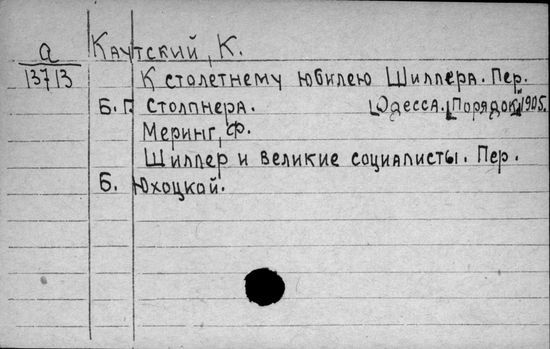 а
13713
Каутский, К.
К столетнему юбилею Шиллера. Пер.
Б. Г. Столпнера. [Одесса. "Порядок" 1905.
Меринг, Ф.
Шиллер и великие социалисты. Пер.
Б. Юхоцкой.